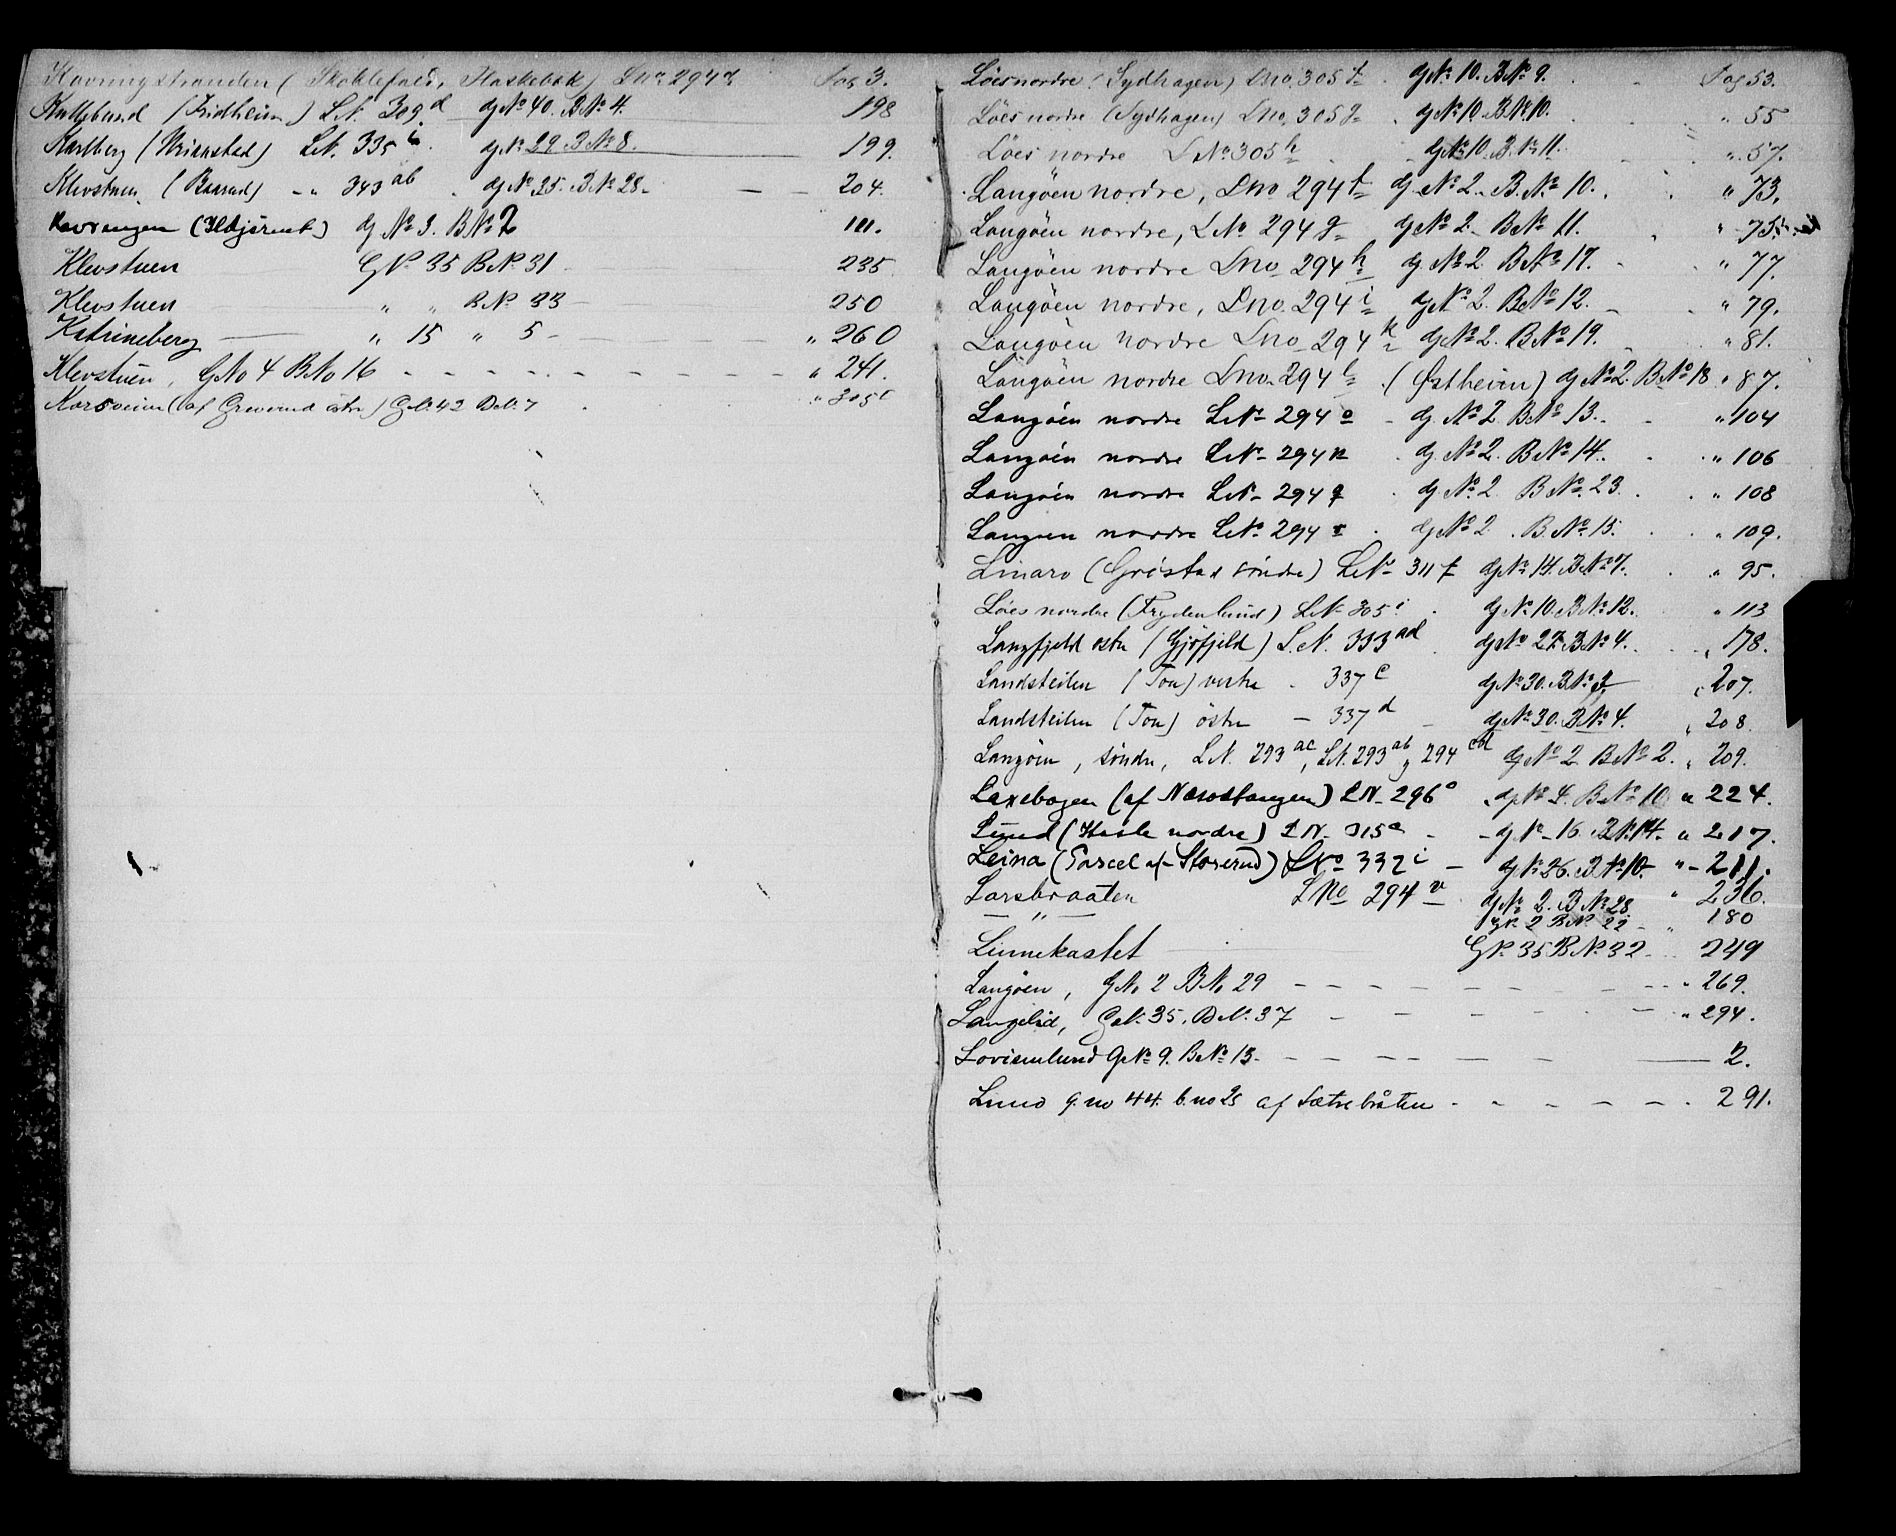 Kavringstranden (Skoklefald, Flaskebæk) Lno 294 Pag 3.
(Fridheim) L.N. 309 d g No 40. B No 4. 198
Karlberg L.N. 335 i g No 29. B No 8. 199.
Klevstuen, - " 343 ab g No 35. B No 28 - 204.
Kavrengen (Ildjernet) g No 3. B No 2 111.
Klevstuen G No 35 B No 31 235
Klevstuen " " B No 33 250
Katrineberg " 15 " 5 - " 260
Klevstuen, G No 4 B No 16 - - - - " 241.
(af Grevrud östre) G.N. 42 B.N. 7 " 305
Löes nordre (Sydhagen) Lno. 305 f g No 10. B No 9. Pag 53.
Löes nordre (Sydhagen) Lno. 305 g g No 10. B No 10. " 55
Löes nordre L No 305 h g No 10. B No 11. " 57.
Langöen nordre, Lno 294 f g No 2. B. No 10. " 73.
Langöen nordre, L No 294 g g No 2. B No 11. " 75.
Langöen nordre Lno 294 h g No 2 B No 17. " 77.
Langöen nordre, Lno. 294 i g No 2. B No 12. " 79.
Langöen nordre Lno 294 k g No 2. B No 19. " 81.
Langöen nordre Lno. 294 l (Østheim) g No 2. B No 18 " 87.
Langöen nordre L No 294 o - g No 2. B No 13. " 104
Langöen nordre L No 294 n g. No 2. B No 14. " 106
Langöen nordre L No 294 q g No 2. B No 23. " 108
Langöen nordre L No 294 r g No 2. B. No 15. " 109.
Linaro (Gröstad söndre) L No 311 f g No 14. B No 7. " 95.
Löes nordre (Frydenlund) L No 305 i g No 10. B No 12. " 113
Langfjeld östre (Gjöfjeld) L. N. 333 ad g No 27. B No 4. " 178.
Landsteilen (Tou) vestre - 337 c g No 30. B No 3 " 207.
Landsteilen (Tou) östre - 337 d g No 30. B No 4. " 208.
Langöen, söndre, L.N. 293 ac, L.N. 293 ab, 294 cd g No 2 B No 2. " 209.
Laxebogen (af Næsstangen) L N. 296 o g No 4. B No 10 " 224.
Lund (Hasle nordre) L N. 315 a - g No 16. B No 14. " 217.
Leina (Parcel af Storerud) L No 332 i - g No 26. B No 10. " - 211.
Larsbraaten L No 294 v g No 2. B No 28 " 236.
— " — G No 2 B No 22 - " 180
Linnekastet G No 35 B No 32 - 249
Langöen, G No 2 B No 29 - - - - " 269.
Langelid, G.N. 35. B.N. 37 - - - " 294.
Lovisenlund G No 9. B No 13. - - - 2.
Lund g. no 44. b. no 25 af Sætrebråten - - - 291.